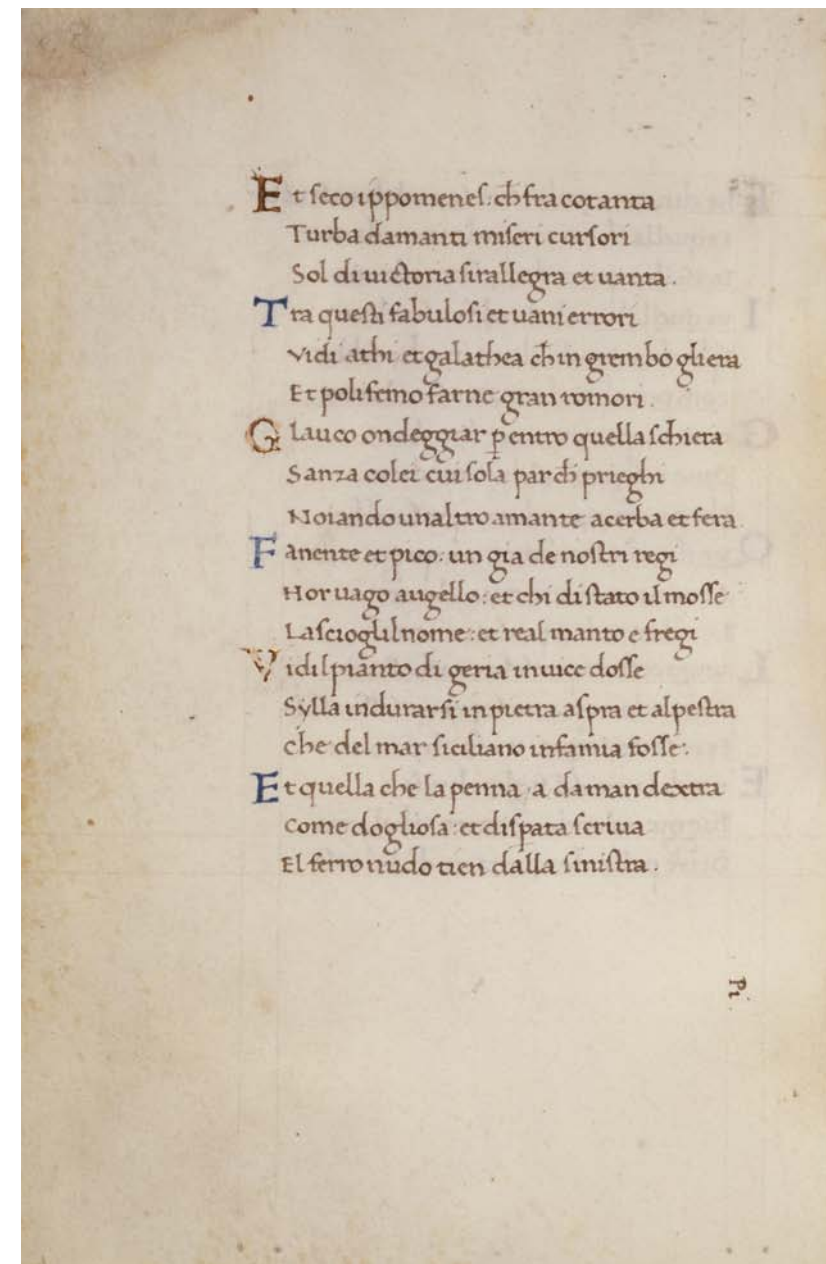 Et seco ippomenes. ch fra cotanta
Turba damanti miseri cursori
Sol di uictoria sirallegra et uanta.
Tra questi fabulosi et uani errori
Vidi athi et galathea ch in grembo gliera
Et polifemo farne gran romori.
Glauco ondeggiar p entro quella schiera
Sanza colei cui sola par ch prieghi
Noiando unaltro amante acerba et fera
Fanente et pico. un gia de nostri regi
Hor uago augello. et chi di stato il mosse
Lascioglilnome. et real manto e fregi
Vidilpianto di geria inuice dosse
Sylla indurarsi in pietra aspra et alpestra
che del mar siciliano infamia fosse.
Et quella che la penna a da man dextra
come dogliosa. et dispata scriua
El ferro nudo tien dalla sinistra.
Pi